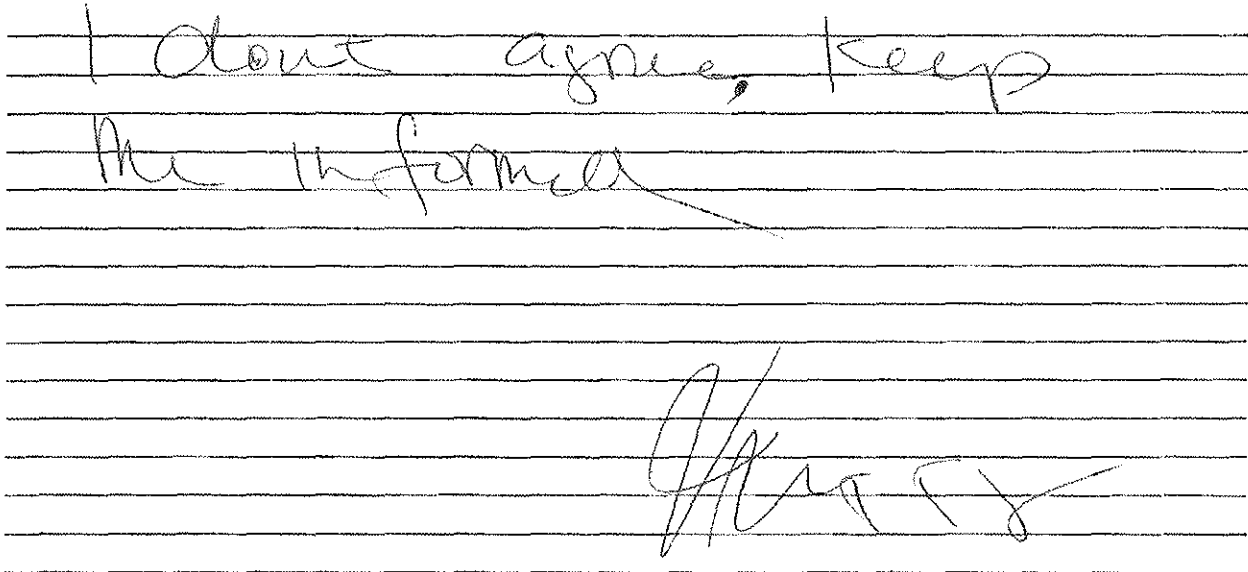 I dont agree, Keep
me informed